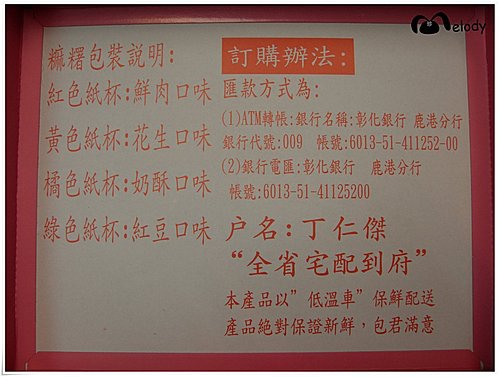 Melody
麻糬包裝說明:
紅色紙杯:鮮肉口味
黃色紙杯:花生口味
橘色紙杯:奶酥口味
綠色紙杯:紅豆口味
訂購辦法:
匯款方式為:
(1)ATM轉帳:銀行名稱:彰化銀行 鹿港分行
銀行代號:009 帳號:6013-51-411252-00
(2)銀行電匯:彰化銀行 鹿港分行
帳號:6013-51-41125200
户名:丁仁傑
“全省宅配到府”
本產品以”低溫車”保鮮配送
產品絕對保證新鮮,包君滿意